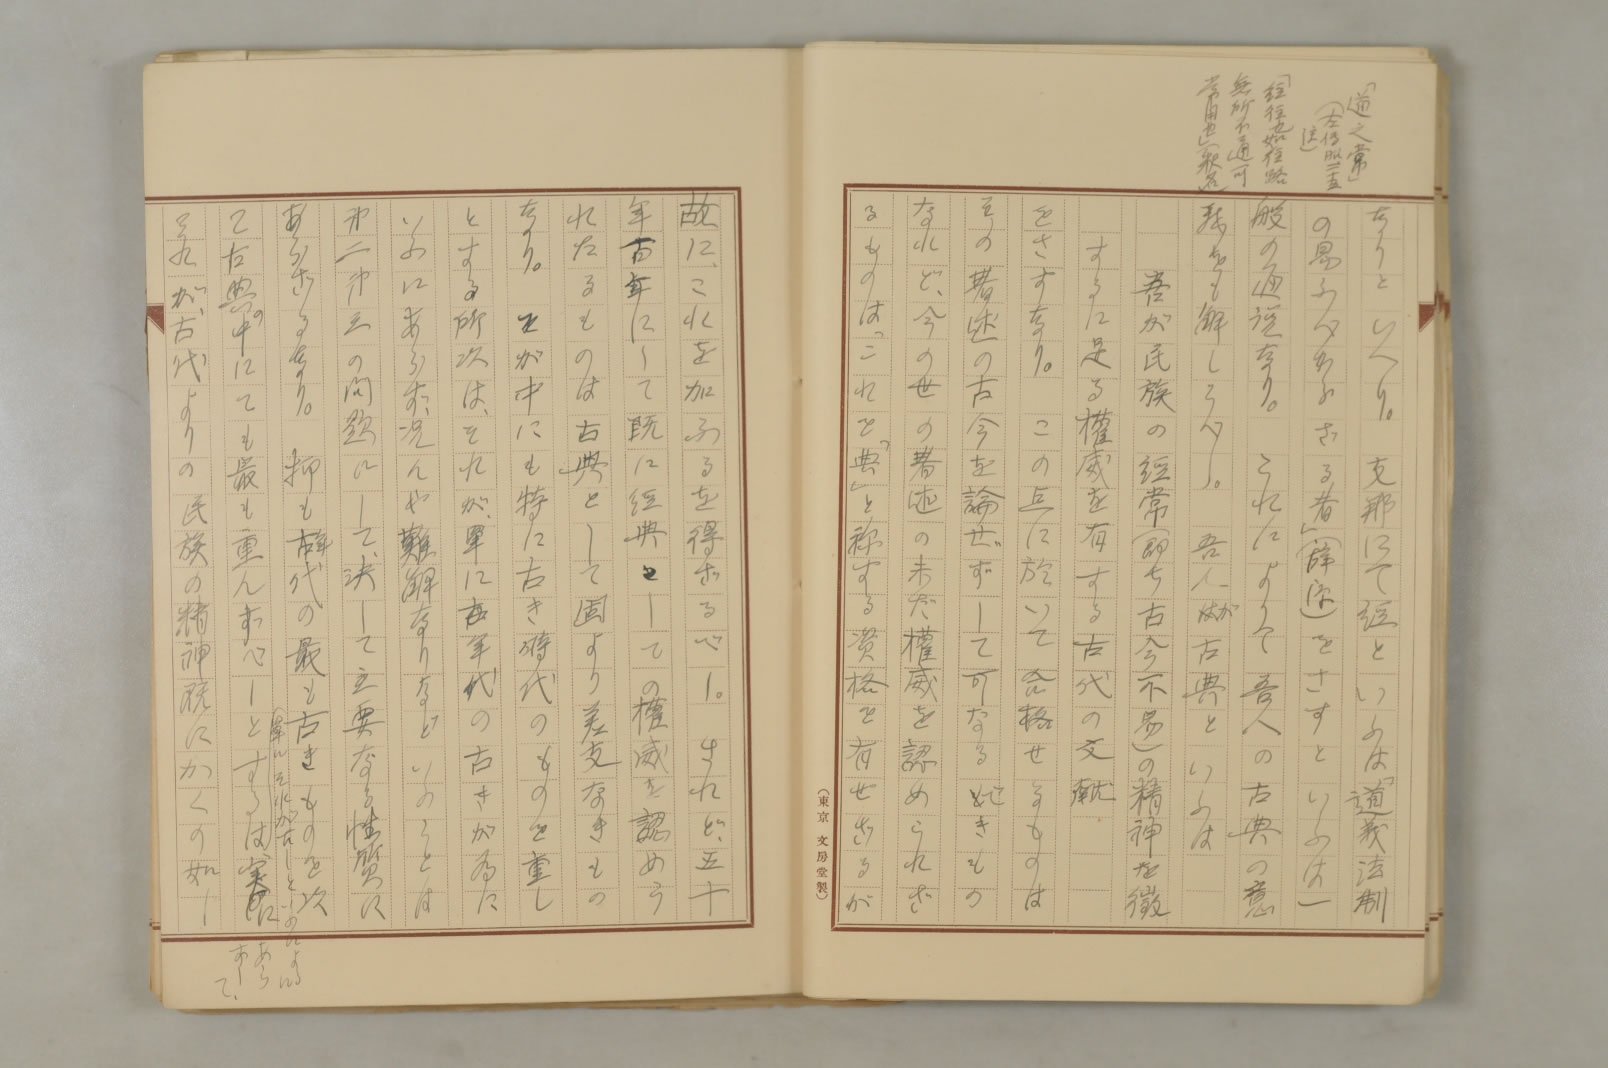 「道之常」
(左傳昭二五
注)
「經徑也如徑路
無所不通可
常用也」(釈名)
なりといへり。 支那にて經といふは「道義法制
の易ふべからざる者」(辭源)をさすといふは一
般の通説なり。 これによりて吾人の古典の意
義をも解しうべし。 吾人が古典といふは
吾が民族の經常(即ち古今不易)の精神を徴
するに足る權威を有する古代の文獻
をさすなり。 この点に於いて合格せるものは
その著述の古今を論ぜずして可なるべきもの
なれど、今の世の著述の未だ權威を認められざ
るものは「これを「典」と称する資格を有せざるが
(東京 文房堂製)
故に、これを加ふるを得ざるべし。 されど、五十
年百年にして既に經典としての權威を認めら
れたるものは古典として固より差支なきもの
なり。 これが中にも特に古き時代のものを重し
とする所次は、それが、單に年代の古きが為に
いふにあらず、況んや難解なりなどいふことは
第二第三の問題にして、決して主要なる性質に
あらざるなり。 抑も古代の最も古きものを以
て古典の中にても最も重んずべしとするは、実に
單にそれが古しといふによるに
あらずして、
それが、古代よりの民族の精神既にかくの如し